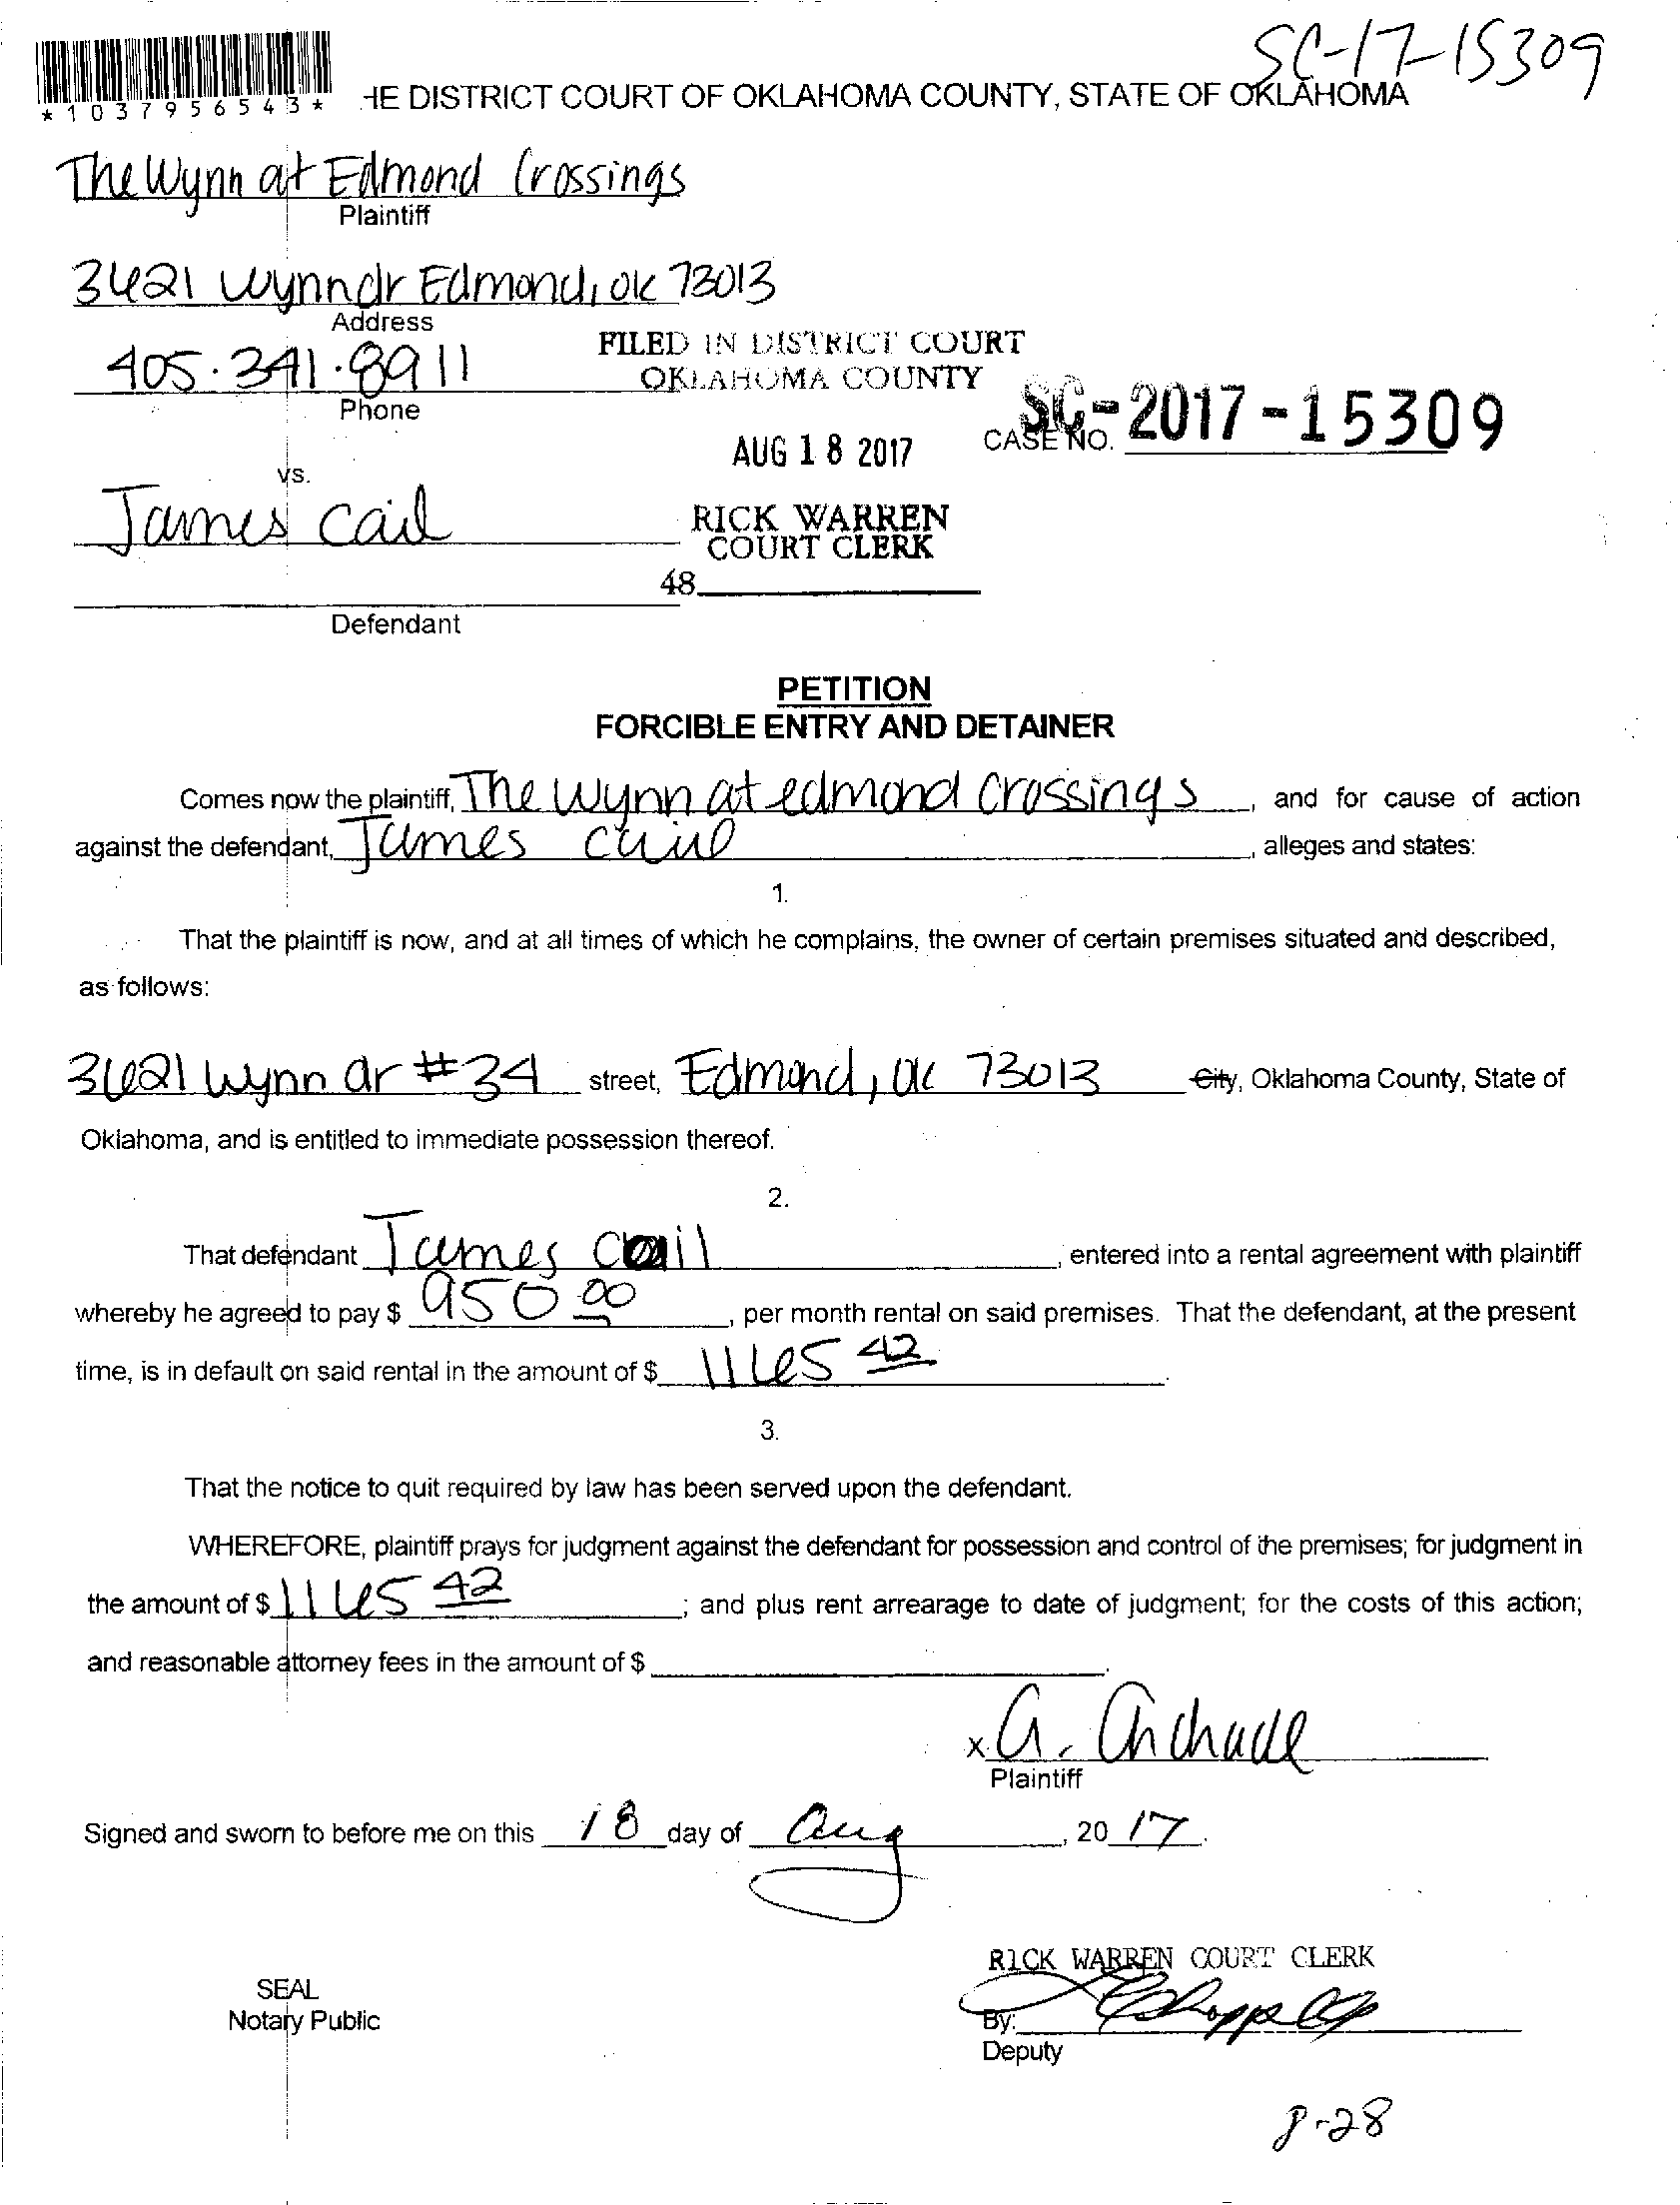 SC-17-15309
*1037956543*
HE DISTRICT COURT OF OKLAHOMA COUNTY, STATE OF OKLAHOMA
The Wynn at Edmond Crossings
Plaintiff
3621 Wynn dr Edmond, OK 73013
Address
405.341.8911
Phone
FILED IN DISTRICT COURT
OKLAHOMA COUNTY
AUG 18 2017
CASE NO. SC-2017-15309
vs.
James Cail
RICK WARREN
COURT CLERK
48
Defendant
PETITION
FORCIBLE ENTRY AND DETAINER
Comes now the plaintiff, The Wynn at edmond Crossings, and for cause of action
against the defendant, James Cail, alleges and states:
1.
That the plaintiff is now, and at all times of which he complains, the owner of certain premises situated and described,
as follows:
3621 Wynn dr #34 street, Edmond, OK 73013 City, Oklahoma County, State of
Oklahoma, and is entitled to immediate possession thereof.
2.
That defendant James Cail, entered into a rental agreement with plaintiff
whereby he agreed to pay $ 950 00, per month rental on said premises. That the defendant, at the present
time, is in default on said rental in the amount of $ 1165 42.
3.
That the notice to quit required by law has been served upon the defendant.
WHEREFORE, plaintiff prays for judgment against the defendant for possession and control of the premises; for judgment in
the amount of $ 1165 42; and plus rent arrearage to date of judgment; for the costs of this action;
and reasonable attorney fees in the amount of $
x A.
Plaintiff
Signed and sworn to before me on this 18 day of Aug, 2017.
RICK WARREN COURT CLERK
SEAL
Notary Public
By:
Deputy
8-28